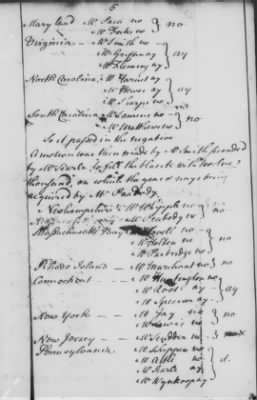 5
Maryland Mr Paca no } no
Mr Forbes no
Virginia - Mr Smith no
Mr Griffin ay } ay
Mr Fleming ay
North Carolina, Mr Harnet ay
Mr Hewes ay } ay
Mr Sharpe no
South Carolina Mr Laurens no } no
Mr Mathews no
So it passed in the negative
A motion was then made by Mr Smith seconded
by Mr to fill the blank with twelve
thousand, on which the yeas & nays being
required by Mr Peabody
Newhampshire Mr Whipple no } no
Mr Peabody no
Massachusetts Bay Lovell no
Mr Holten no } no
Mr Partridge no
Rhode Island - Mr Marchant no } no
Connecticut - Mr Huntington no
Mr Root ay } ay
Mr Spencer ay
New York - Mr Jay no } no
no
New Jersey - Mr Scudder no }
Pennsylvania. Mr Shippen no
Mr Atlee no } d.
Mr ay
Mr Wynkoop ay